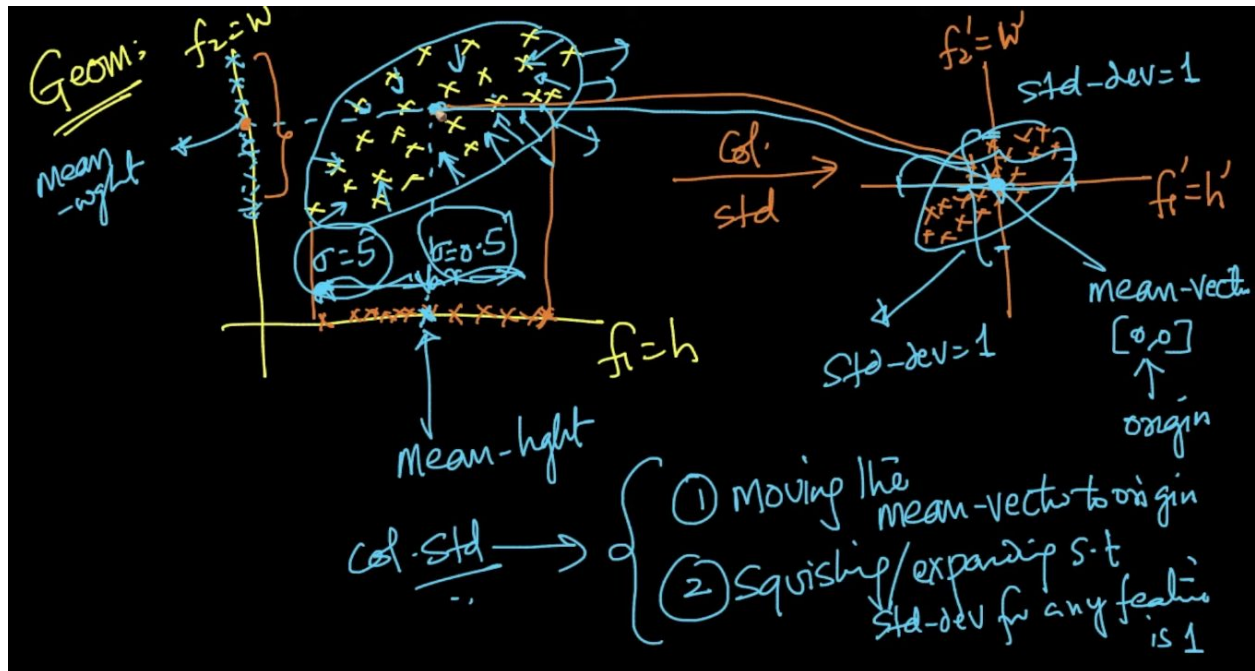 Geom:
f₂=W
mean
-wght
σ=5
σ=0.5
f₁=h
mean-hght
Col.
std
f₂'=W'
std-dev=1
f₁'=h'
std-dev=1
mean-vecto
[0,0]
origin
Col.Std
① Moving the
mean-vector to origin
② Squishing/expanding s.t
std-dev for any feature
is 1